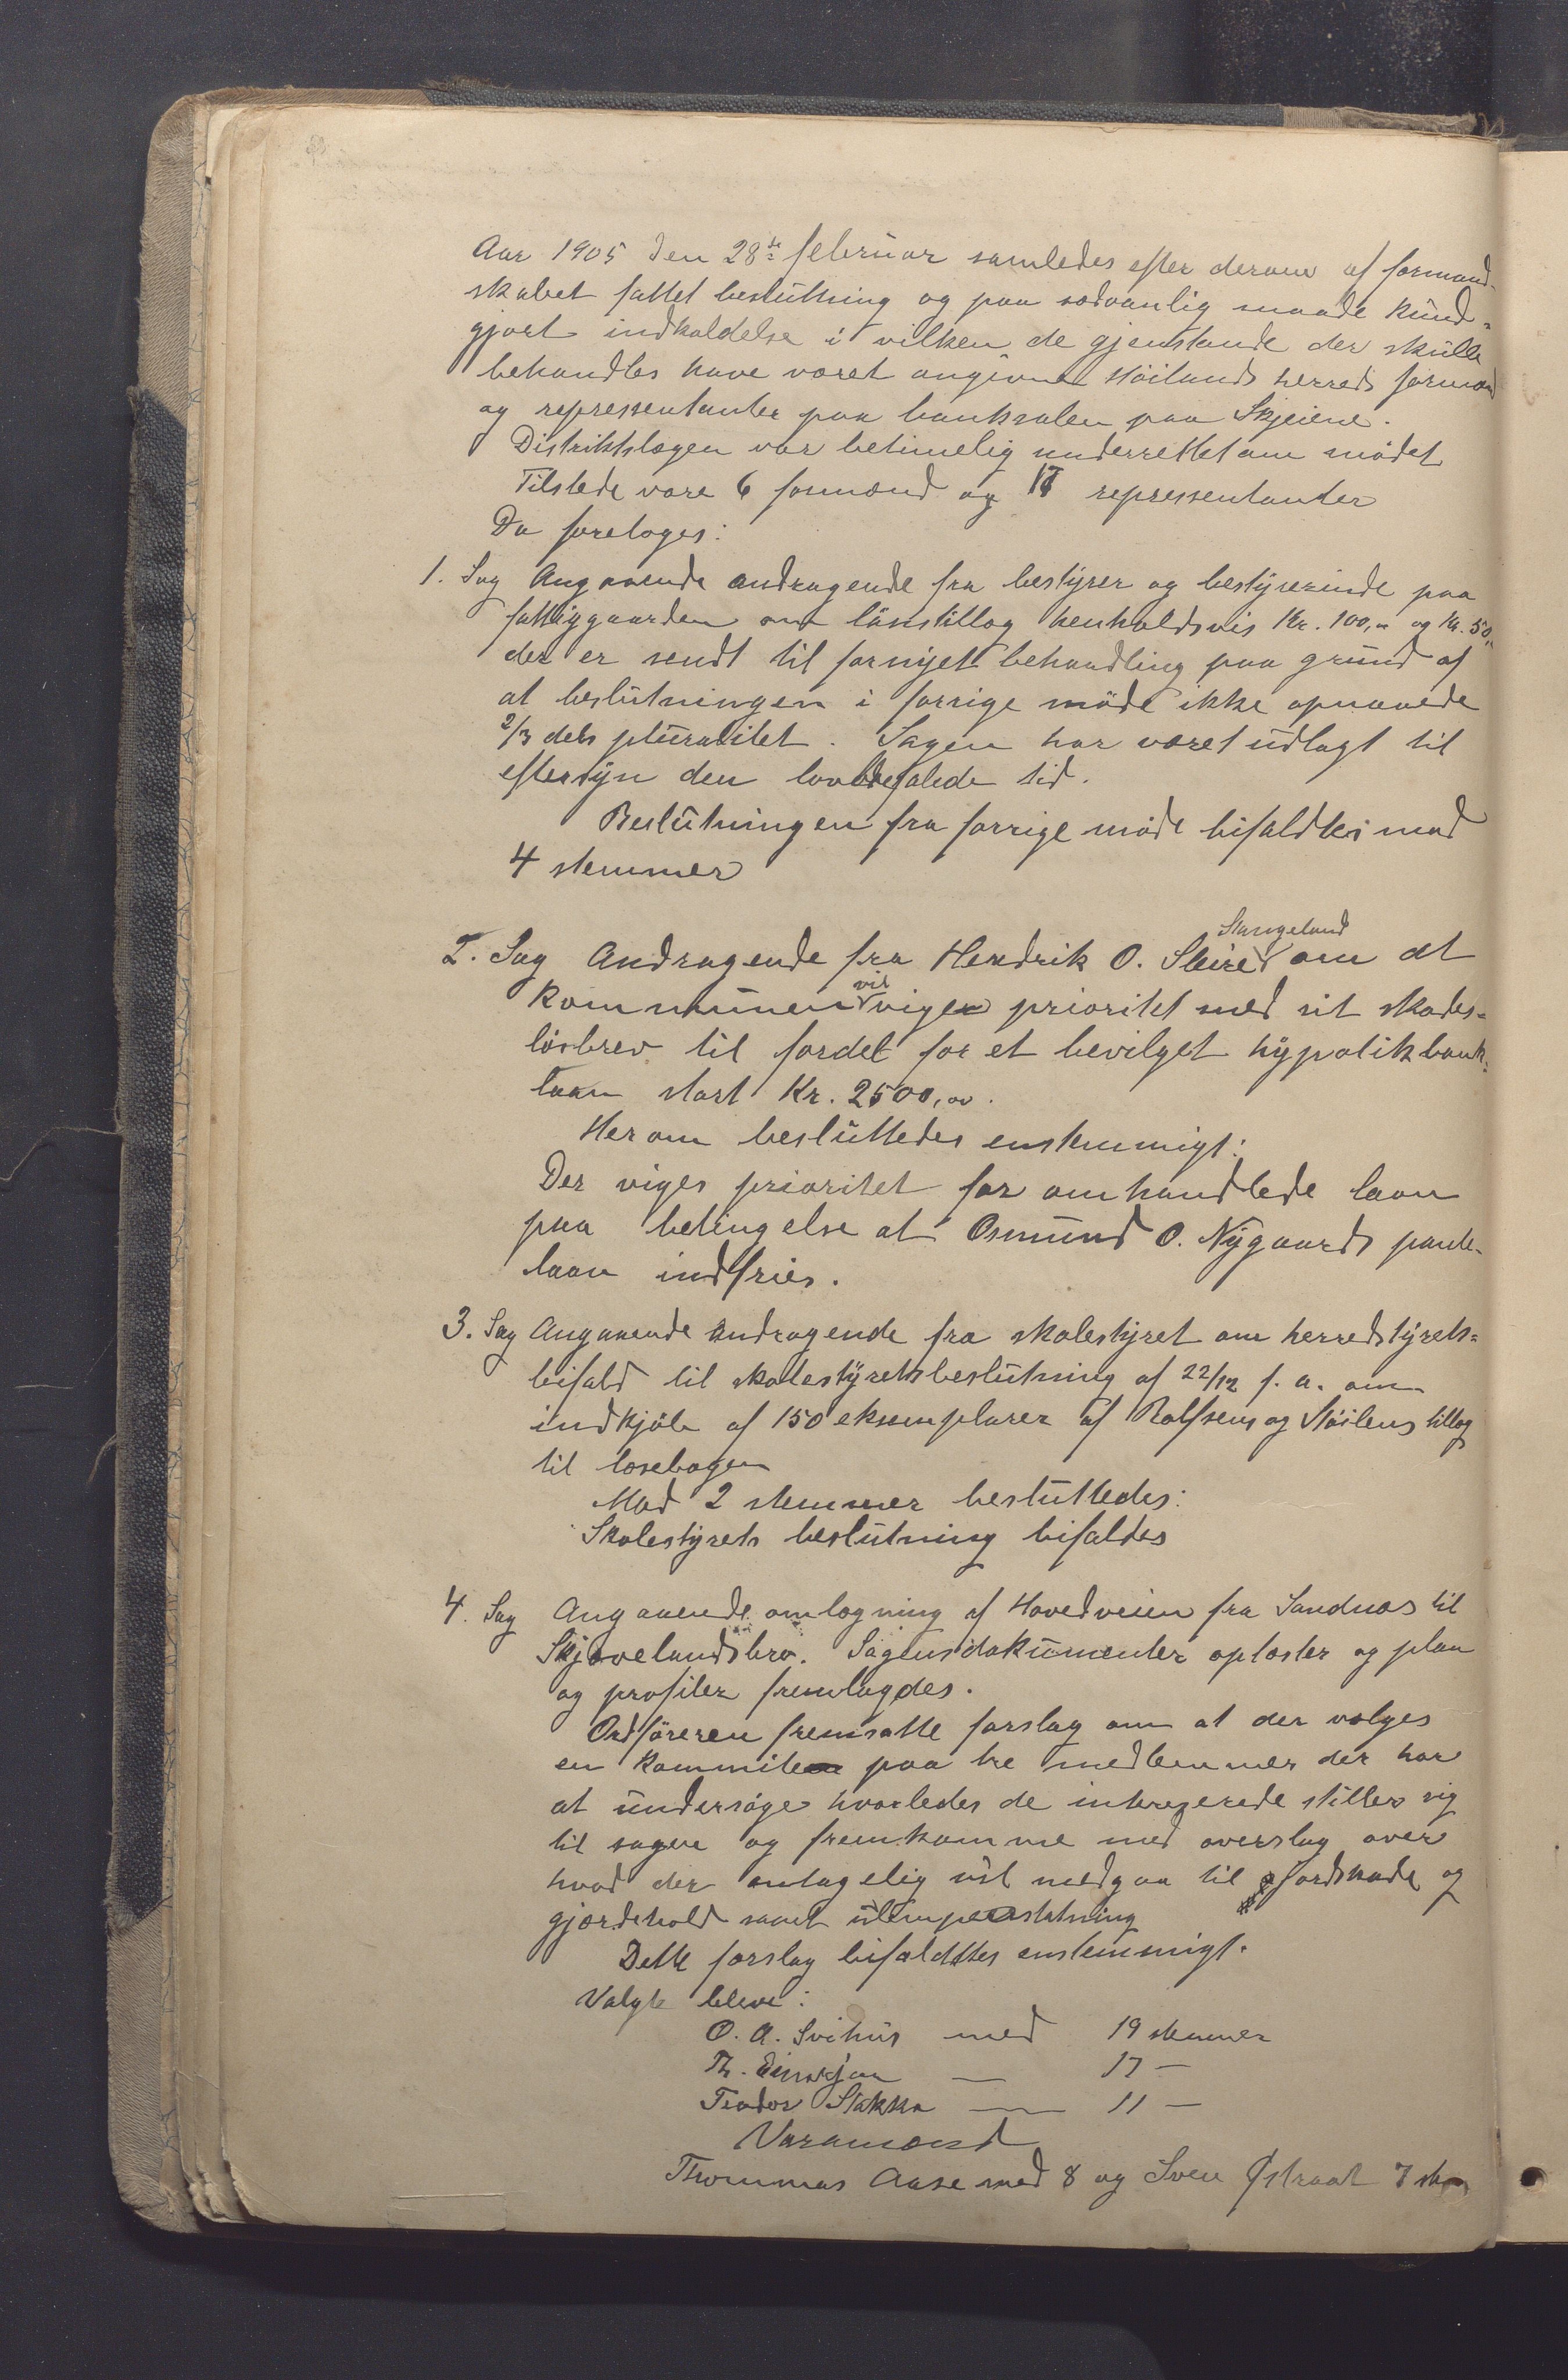 Aar 1905 den 28de februar samledes efter derom af formand-
skabet fattet beslutning og paa sædvanlig maade kund-
gjort indkaldelse i vilken de gjenstande der skulle
behandles have været angivne Høilands herreds formænd
og repressentanter paa banksalen paa Skjeiene.
Distriktslægen var betimelig underrettet om mødet
Tilstede vare 6 formænd og repressentanter
Da foretoges:
1. Sag Angaaende andragende fra bestyrer og bestyrerinde paa
fattiggaarden om lönstillæg henholdsvis Kr. 100,- og Kr. 50,-
der er sendt til fornyet behandling paa grund af
at beslutningen i forrige möde ikke opnaaede
2/3 dels pluralitet. Sagen har været udlagt til
eftersyn den lovbefalede tid.
Beslutningen fra forrige möde bifaldtes mod
4 stemmer
Stangeland
2. Sag Andragende fra Hendrik O. Skeire om at
kommunen vil vige prioritet med sit skades-
lösbrev til fordel for et bevilget hypotikbank-
laan stort Kr. 2500,00.
Herom besluttedes enstemmigt:
Der viges prioritet for omhandlede laan
paa betingelse at Osmund O. Nygaards pante-
laan indfries.
3. Sag Angaaende andragende fra skolestyret om herredstyrets-
bifald til skolestyretsbeslutning af 22/12 f. a. om
indkjöb af 150 eksemplarer af Rolfsens og Støilens tillæg
til læsebogen
Mod 2 stemmer besluttedes:
Skolestyrets beslutning bifaldes
4. Sag Angaaende omlægning af Hovedveien fra Sandnæs til
Skjævelandsbro. Sagens dokumenter oplæstes og plan
og profiler fremlagdes.
Ordföreren fremsatte forslag om at der vælges
en kommite paa tre medlemmer der har
at undersöge hvorledes de interesserede stiller sig
til sagen og fremkomme med overslag over
hvad der antagelig vil medgaa til jordskade og
gjærdehold samt ulempeerstatning
Dette forslag bifaldttes enstemmigt.
Valgte bleve:
O. A. Svihus med 19 stemmer
Th. — 17 —
Teodor Stokka — 11 —
Varamænd
Thommas Aase med 8 og Sven Østraat 7 st